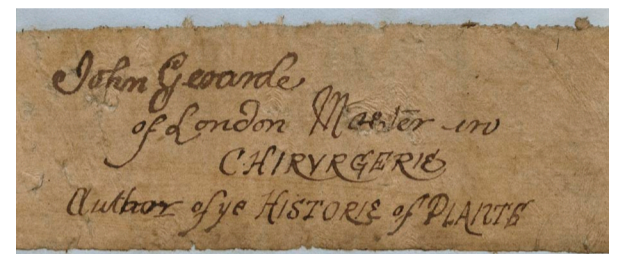 John Gerarde
of London Master in
CHIRVRGERIE
Author of ye HISTORIE of PLANTS